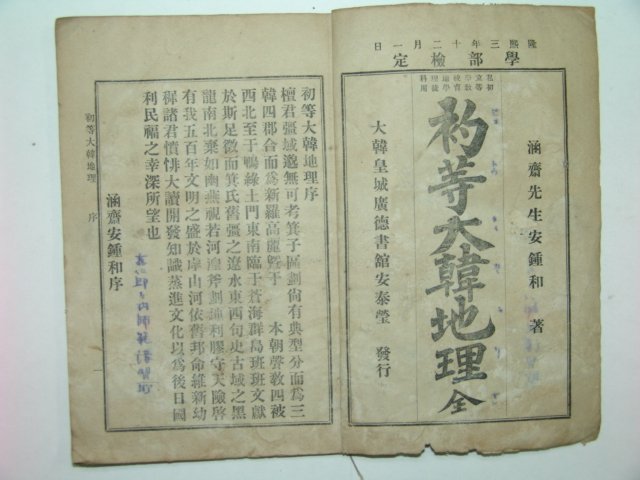 隆熙三年十二月一日
學部檢定
涵齋先生安鍾和 著
初等大韓地理 全
大韓皇城廣德書館安泰瑩 發行
初等大韓地理序
檀君疆域邈無可考箕子區劃尙有典型分而爲三
韓四郡合而爲新羅高麗曁于 本朝聲敎四被
西北至于鴨綠土門東南臨于蒼海群島班班文獻
於斯足徵而箕氏舊疆之遼水東西句史古域之黑
龍南北棄如幽燕視若河
守天險啓
有我五百年文明之盛於摩山河依舊邦命維新幼
穉諸君憤悱大讀開發知識蒸進文化以爲後日國
利民福之幸深所望也
涵齋安鍾和序
初等大韓地理 序 一